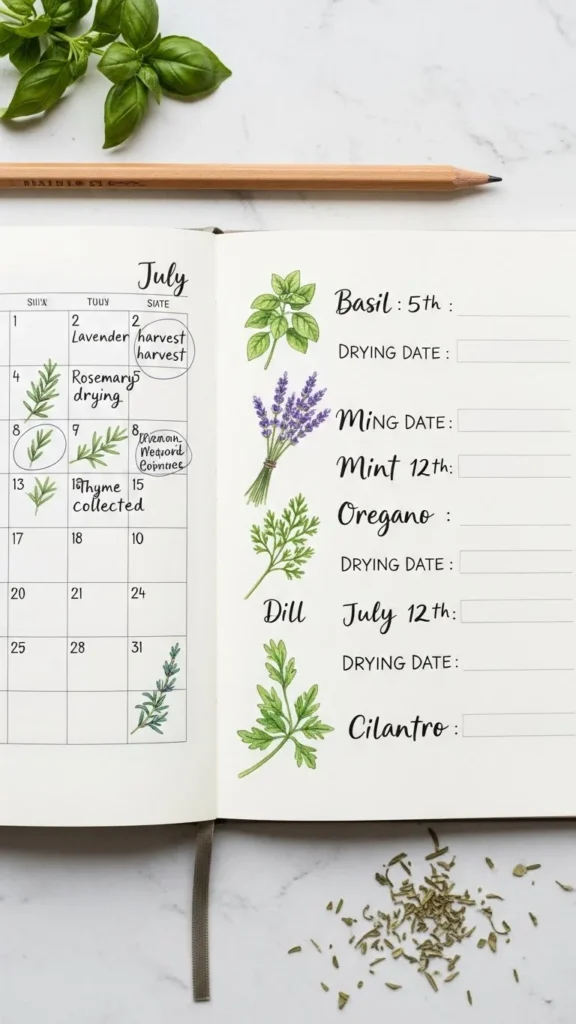 July
1
2
Lavender
2
harvest
harvest
4
Rosemary
drying
5
8
7
8
13
Thyme
collected
15
17
18
10
20
21
24
25
28
31
Basil : 5th :
DRYING DATE :
MiNG DATE:
Mint 12th:
Oregano :
DRYING DATE:
Dill
July 12th:
DRYING DATE:
Cilantro :